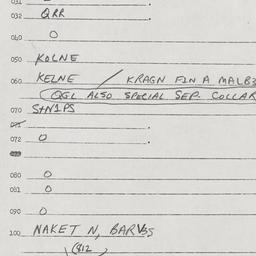 031
032 QRR .
040 O
050 KOLNE
060 KELNE / KRAGN FIN A MALB3
(QGL ALSO SPECIAL SEP. COLLAR
070 S+N1PS
071 .
072 O .
073
080 O
081 O
090 O
100 NAKET N, BARVSS
(812)